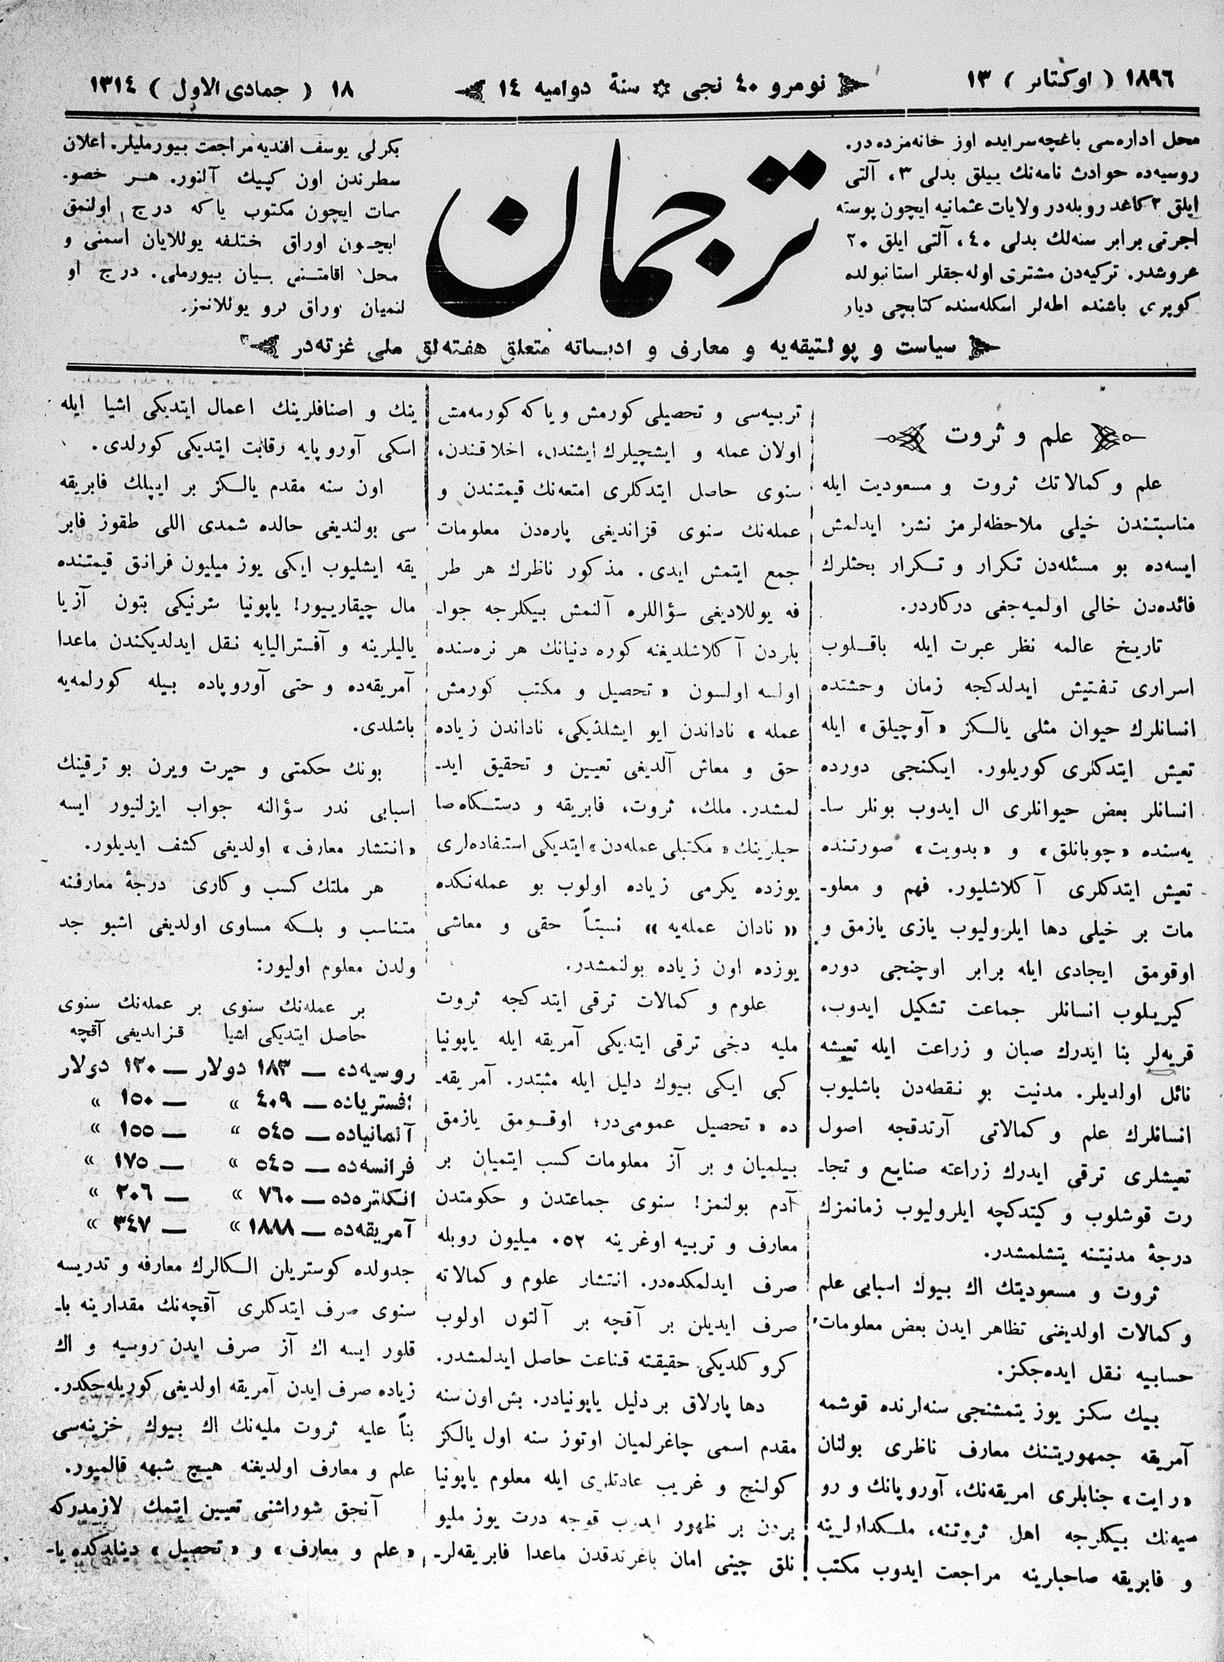 ١٨٩٦ ( اوكتابر ) ١٣
نومرو ٤٠ نجی ✡ سنهٔ دوامیه ١٤
١٨ ( جمادی الاول ) ١٣١٤
محل اداره‌سی باغچه‌سرایده اوز خانه‌مزده‌در.
روسیه‌ده حوادث نامه‌نك ییلق بدلی ٣، آلتی
ایلق ٢ كاغد روبله‌در ولایات عثمانیه ایچون پوسته
اجرتی برابر سنه‌لك بدلی ٤٠، آلتی ایلق ٢٠
غروشدر. تركیه‌دن مشتری اوله‌جقلر استانبولده
كوپری باشنده اطه‌لر اسكله‌سنده كتابچی دیار
ترجمان
بكرلی یوسف افندیه مراجعت بیورملیلر. اعلان
سطرندن اون كپیك آلنور. هر خصو-
صات ایچون مكتوب یاكه درج اولنمق
ایچون اوراق ختلفه یوللایان اسمنی و
محل اقامتنی بیان بیورملی. درج او
لنمیان وراق كرو یوللانمز.
سیاست و پولتیقه‌یه و معارف و ادبیاته متعلق هفته‌لق ملی غزته‌در
علم و ثروت
علم و كمالاتك ثروت و مسعودیت ایله
مناسبتندن خیلی ملاحظه‌لرمز نشر ایدلمش
ایسه‌ده بو مسئله‌دن تكرار و تكرار بحثلرك
فائده‌دن خالی اولمیه‌جغی دركاردر.
تاریخ عالمه نظر عبرت ایله باقلوب
اسراری تفتیش ایدلدكجه زمان وحشتده
انسانلرك حیوان مثلی یالكز «آوچیلق» ایله
تعیش ایتدكلری كوریلور. ایكنجی دورده
انسانلر بعض حیوانلری ال ایدوب بونلر سا-
یه‌سنده «چوبانلق» و «بدویت» صورتنده
تعیش ایتدكلری آكلاشلیور. فهم و معلو-
مات بر خیلی دها ایلرولیوب یازی یازمق و
اوقومق ایجادی ایله برابر اوچنجی دوره
كیریلوب انسانلر جماعت تشكیل ایدوب،
قریه‌لر بنا ایدرك صبان و زراعت ایله تعیشه
نائل اولدیلر. مدنیت بو نقطه‌دن باشلیوب
انسانلرك علم و كمالاتی آرتدقجه اصول
تعیشلری ترقی ایدرك زراعته صنایع و تجا-
رت قوشلوب و كیتدكچه ایلرولیوب زمانمزك
درجهٔ مدنیتنه یتشلمشدر.
ثروت و مسعودیتك اك بیوك اسبابی علم
و كمالات اولدیغنی تظاهر ایدن بعض معلومات
حسابیه نقل ایده‌جكز.
بیك سكز یوز یتمشنجی سنه‌لرنده قوشمه
آمریقه جمهوریتنك معارف ناظری بولنان
«رایت» جنابلری امریقه‌نك، آوروپانك و رو
سیه‌نك بیكلرجه اهل ثروتنه، ملكدادلرینه
و فابریقه صاحبلرینه مراجعت ایدوب مكتب
تربیه‌سی و تحصیلی كورمش ویاكه كورمه‌مش
اولان عمله و ایشچیلرك ایشندن، اخلاقندن،
سنوی حاصل ایتدكلری امتعه‌نك قیمتندن و
عمله‌نك سنوی قزاندیغی پاره‌دن معلومات
جمع ایتمش ایدی. مذكور ناظرك هر طر
فه یوللادیغی سؤاللره آلنمش بیكلرجه جوا-
بلردن آكلاشلدیغنه كوره دنیانك هر نره‌سنده
اولسه اولسون «تحصیل و مكتب كورمش
عمله» ناداندن ایو ایشلدیكی، ناداندن زیاده
حق و معاش آلدیغی تعیین و تحقیق اید-
لمشدر. ملك، ثروت، فابریقه و دستكاه صا
حبلرینك «مكتبلی عمله‌دن» ایتدیكی استفاده‌لری
یوزده یكرمی زیاده اولوب بو عمله‌نكده
«نادان عمله‌یه» نسبتاً حقی و معاشی
یوزده اون زیاده بولنمشدر.
علوم و كمالات ترقی ایتدكجه ثروت
ملیه دخی ترقی ایتدیكی آمریقه ایله یاپونیا
كبی ایكی بیوك دلیل ایله مثبتدر. آمریقه-
ده «تحصیل عمومی‌در؛ اوقومق یازمق
بیلمیان و بر آز معلومات كسب ایتمیان بر
آدم بولنمز! سنوی جماعتدن و حكومتدن
معارف و تربیه اوغرینه ٠٥٢ میلیون روبله
صرف ایدلمكده‌در. انتشار علوم و كمالاته
صرف ایدیلن بر آقچه بر آلتون اولوب
كروكلدیكی حقیقته قناعت حاصل ایدلمشدر.
دها پارلاق بر دلیل یاپونیادر. بش اون سنه
مقدم اسمی چاغرلمیان اوتوز سنه اول یالكز
كولنج و غریب عادتلری ایله معلوم یاپونیا
بردن بر ظهور ایدوب قوجه درت یوز ملیو
نلق چینی امان باغرتدقدن ماعدا فابریقه‌لر-
ینك و اصنافلرینك اعمال ایتدیكی اشیا ایله
اسكی آوروپایه رقابت ایتدیكی كورلدی.
اون سنه مقدم یالكز بر ایپلك فابریقه
سی بولندیغی حالده شمدی اللی طقوز فابر
یقه ایشلیوب ایكی یوز میلیون فرانق قیمتنده
مال چیقارییور! یاپونیا شرنیكی بتون آزیا
یالیلرینه و آفسترالیایه نقل ایدلدیكندن ماعدا
آمریقه‌ده و حتی آوروپاده بیله كورلمه‌یه
باشلدی.
بونك حكمتی و حیرت ویرن بو ترقینك
اسبابی ندر سؤالنه جواب ایزلنیور ایسه
«انتشار معارف» اولدیغی كشف ایدیلور.
هر ملتك كسب و كاری درجهٔ معارفنه
متناسب و بلكه مساوی اولدیغی اشبو جد
ولدن معلوم اولیور:
بر عمله‌نك سنوی بر عمله‌نك سنوی
حاصل ایتدیكی اشیا قزاندیغی آقچه
روسیه‌ده — ١٨٣ دولار — ١٣٠ دولار
افستریاده — ٤٠٩ » — ١٥٠ »
آلمانیاده — ٥٤٥ » — ١٥٥ »
فرانسه‌ده — ٥٤٥ » — ١٧٥ »
انكلتره‌ده — ٧٦٠ » — ٢٠٦ »
آمریقه‌ده — ١٨٨٨ » — ٣٤٧ »
جدولده كوستریلن الكالرك معارفه و تدریسه
سنوی صرف ایتدكلری آقچه‌نك مقدارینه با-
قلور ایسه اك آز صرف ایدن روسیه و اك
زیاده صرف ایدن آمریقه اولدیغی كوریله‌جكدر.
بناً علیه ثروت ملیه‌نك اك بیوك خزینه‌سی
علم و معارف اولدیغنه هیچ شبهه قالمیور.
آنجق شوراشنی تعیین ایتمك لازمدركه
«علم و معارف» و «تحصیل» دینلدكده یا-